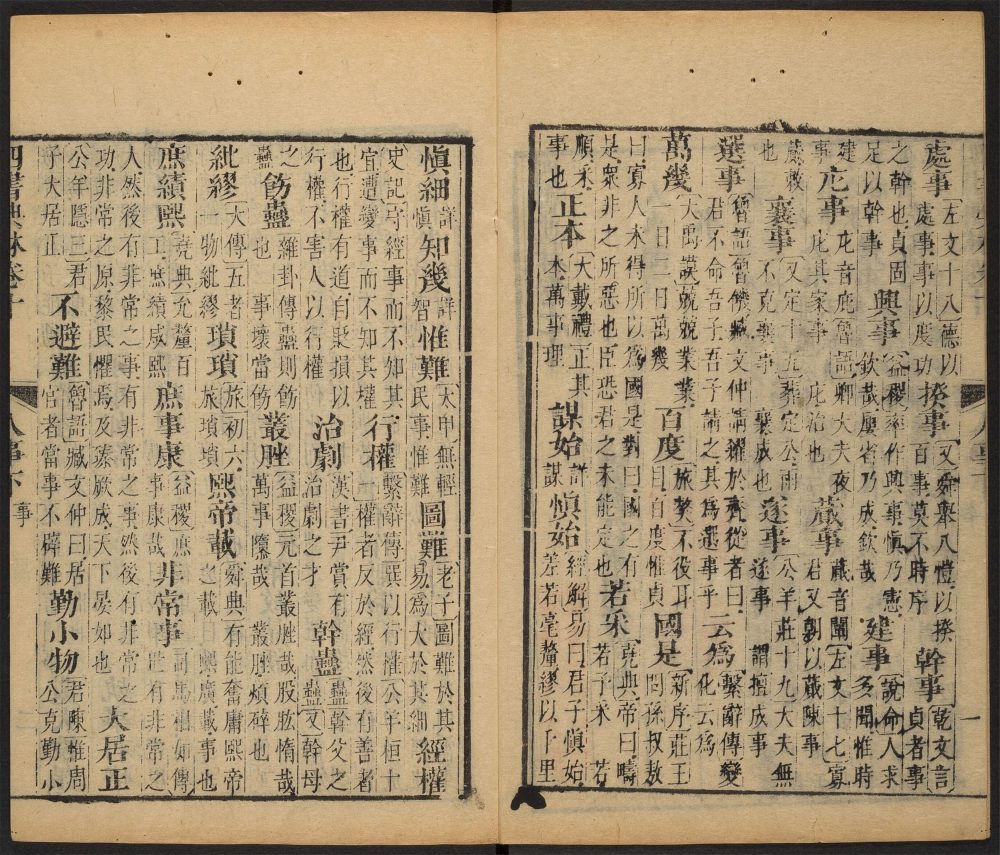 處事 左文十八德以處事事以度功 揆事 又舜舉八愷以揆百事莫不時序 幹事 乾文言貞者事
之幹也貞固足以幹事 興事 益稷率作興事慎乃憲欽哉屢省乃成欽哉 建事 說命人求多聞惟時
建事 庀事 庀音庇魯語卿大夫夜庀其家事 庀治也 蕆事 蕆音闡左文十七寡君又朝以蕆陳事
蕆敕也 襄事 又定十五葬定公雨不克襄事 襄成也 遂事 公羊莊十九大夫無遂事 謂擅成事
選事 魯語魯饑臧文仲請糴於齊從者曰君不命吾子吾子請之其爲選事乎 云爲 繫辭傳變化云爲
萬幾 大禹謨兢兢業業一日二日萬幾 百度 旅獒不役耳目百度惟貞 國是 新序莊王問孫叔敖
曰寡人未得所以爲國是對曰國之有是衆非之所惡也臣恐君之未能定也 若采 堯典帝曰疇若予采 若
順采事也 正本 大戴禮正其本萬事理 謀始 詳謀 慎始 經解易曰君子慎始差若毫釐繆以千里
慎細 詳慎 知幾 詳智 惟難 太甲無輕民事惟難 圖難 老子圖難於其易爲大於其細 經權
史記守經事而不知其宜遭變事而不知其權 行權 繫辭傳巽以行權 公羊桓十一權者反於經然後有善者
也行權有道自貶損以行權不害人以行權 治劇 漢書尹賞有治劇之才 幹蠱 蠱幹父之蠱又幹母
之蠱 飭蠱 雜卦傳蠱則飭也 事壞當飭 叢脞 益稷元首叢脞哉股肱惰哉萬事隳哉 叢脞煩碎也
紕繆 大傳五者一物紕繆 瑣瑣 旅初六旅瑣瑣 熙帝載 舜典有能奮庸熙帝之載 熙廣載事也
庶績熙 堯典允釐百工庶績咸熙 庶事康 益稷庶事康哉 非常事 司馬相如傳世有非常之
人然後有非常之事有非常之事然後有非常之功非常之原黎民懼焉及臻厥成天下晏如也 大居正
公羊隱三君子大居正 不避難 魯語臧文仲曰居官者當事不辟難 勤小物 君陳惟周公克勤小
四書典林卷十 人事下 事 二